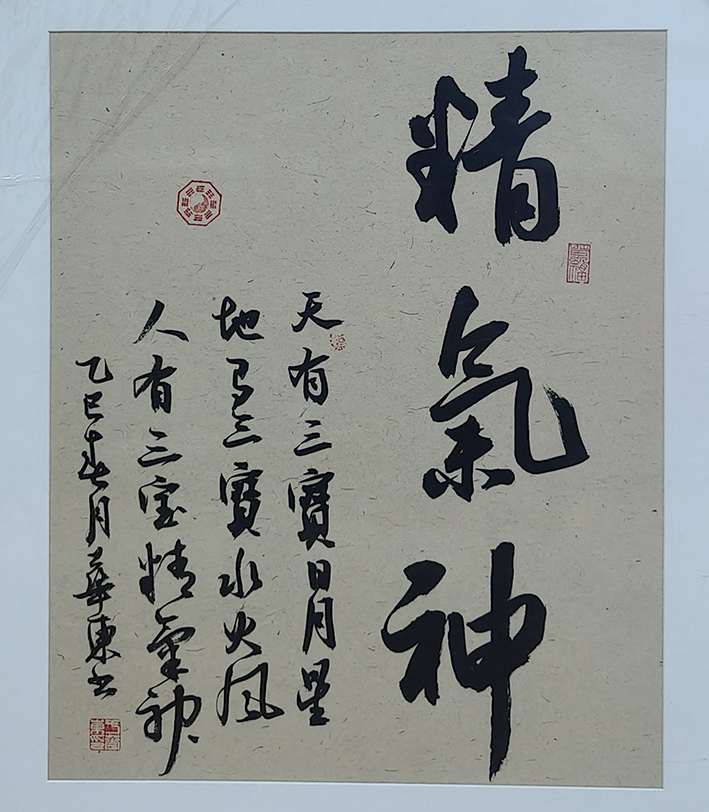 精氣神
天有三寶日月星
地有三寶水火風
人有三宝精氣神
乙巳春月華東书